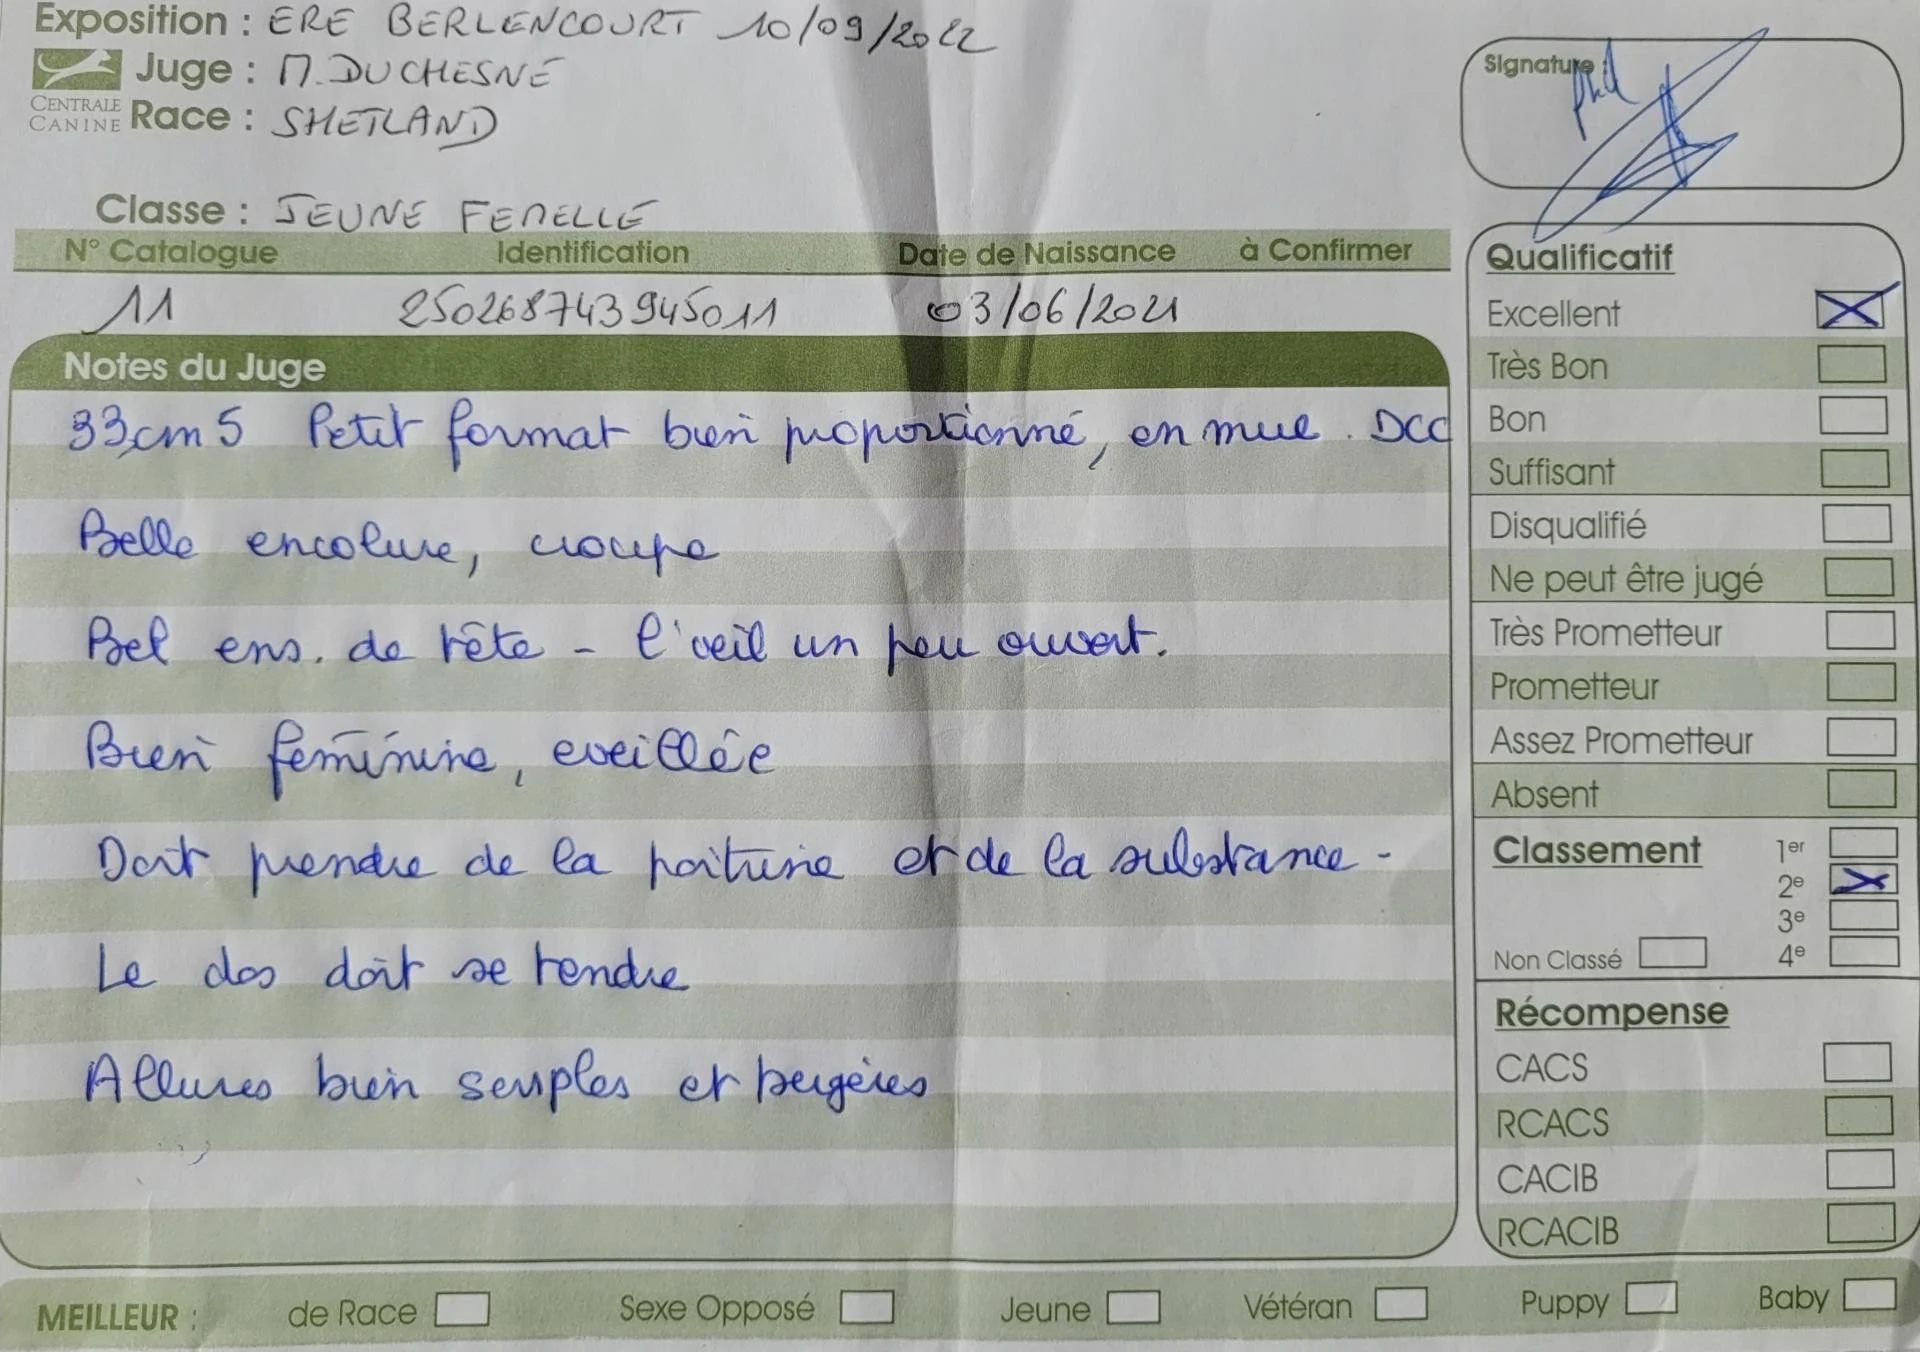 Exposition : ERE BERLENCOURT 10/09/2022
Juge : M. DUCHESNE
CENTRALE CANINE
Race : SHETLAND
Signature :
Classe : JEUNE FEMELLE
N° Catalogue Identification Date de Naissance à Confirmer
11 250268743945011 03/06/2021
Notes du Juge
33cm5 Petit format bien proportionné, en mue. DCC
Belle encolure, croupe
Bel ens. de tête - l'oeil un peu ouvert.
Bien feminine, eveillée
Doit prendre de la poitrine et de la substance -
Le dos doit se tendre
Allures bien souples et bergères
Qualificatif
Excellent
Très Bon
Bon
Suffisant
Disqualifié
Ne peut être jugé
Très Prometteur
Prometteur
Assez Prometteur
Absent
Classement 1er
2e
3e
Non Classé 4e
Récompense
CACS
RCACS
CACIB
RCACIB
MEILLEUR : de Race Sexe Opposé Jeune Vétéran Puppy Baby